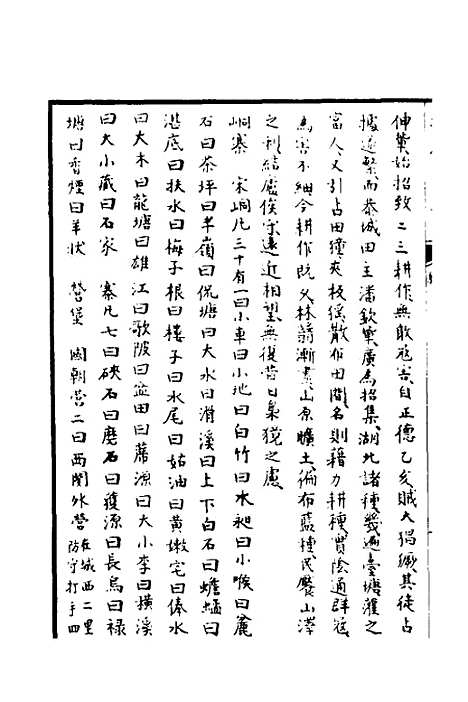 伸輩始招致二三耕作無敢寇害自正德乙亥賊大猖獗其徒占
據遠繁而恭城田主潘欽輩廣為招集湖北諸種幾遍臺塘蓷之
富人又引占田種夾板徭散布田間名則藉力耕種實陰通群寇
為害不細今耕作既久林翳漸盡山原曠土徧布藍種民饜山澤
之利結廬俟守遠近相望無復昔日梟獍之慮
峒寨　宋峒凡三十有一曰小車曰小池曰白竹曰水昶曰小喉曰麓
石曰茶坪曰羊嶺曰侃塘曰大水曰滑溪曰上下白石曰蟾蜍曰
湛底曰扶水曰梅子根曰樓子曰水尾曰姑油曰黃嫩宅曰俸水
曰大木曰龍塘曰雄江曰歌陂曰盆田曰蓆源曰大小李曰橫溪
曰大小藏曰石家　寨凡七曰硤石曰磨石曰獲源曰長烏曰祿
塘曰香煙曰羊狀　營堡　國朝營二曰西閘外營在城西二里
防守打手四